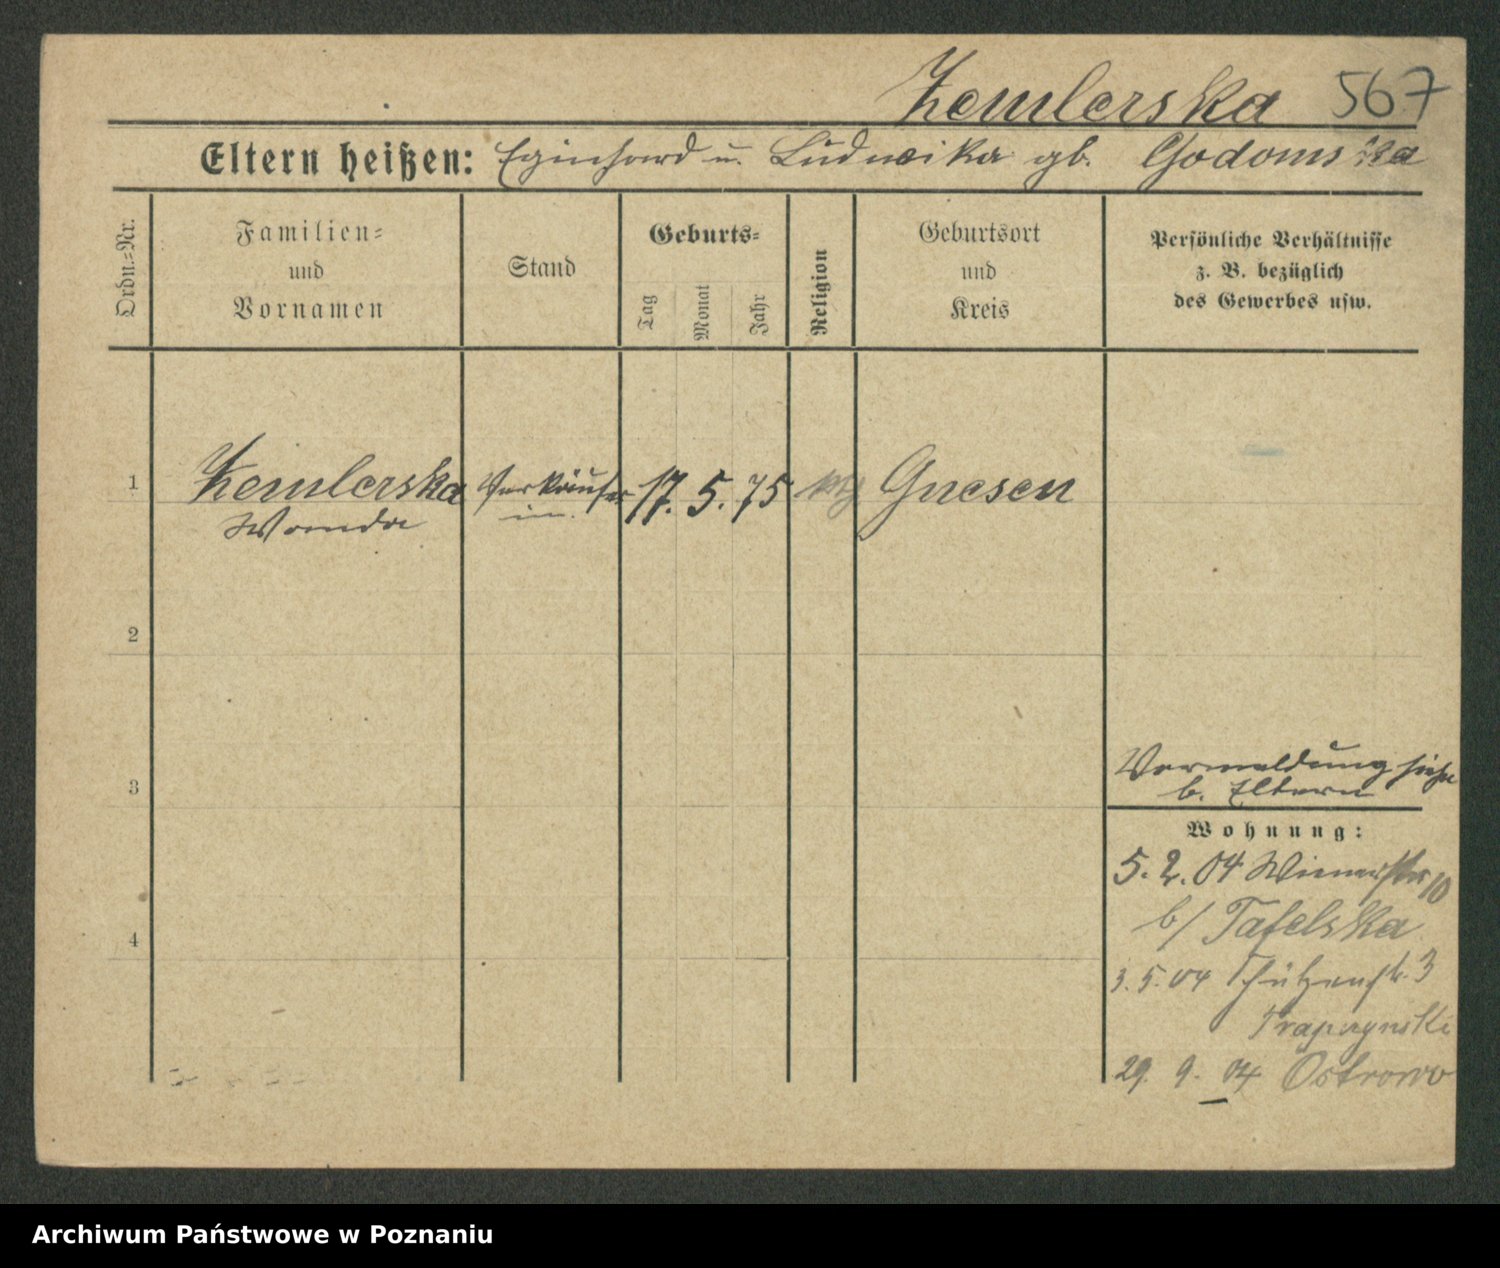 Zemlerska 567
Eltern heißen: Eginhard u. Ludwika gb. Godomska
Ordn.-Nr.
Familien-
und
Vornamen
Stand
Geburts-
Tag
Monat
Jahr
Religion
Geburtsort
und
Kreis
Persönliche Verhältnisse
z. B. bezüglich
des Gewerbes usw.
1 Zemlerska Verkäufer 17. 5. 75 Gnesen
Wanda in.
2
3
Vermeldung siehe
b. Eltern
Wohnung:
5. 2. 04 Wienerstr 10
b/ Tafelska
4
3. 5. 04 Schützenstr. 3
29. 9. 04 Ostrowo
Archiwum Państwowe w Poznaniu